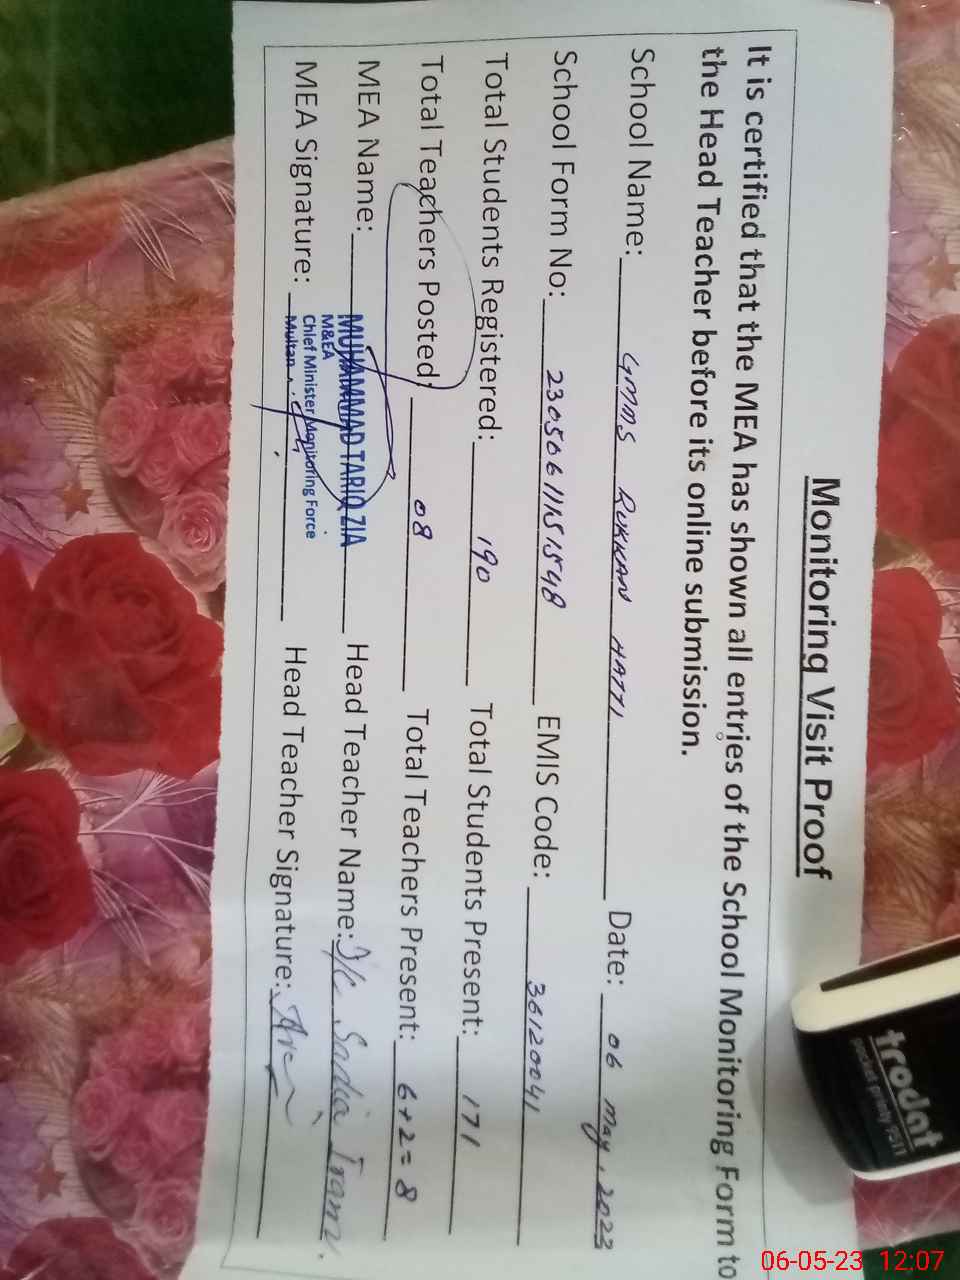 Monitoring Visit Proof
It is certified that the MEA has shown all entries of the School Monitoring Form to
the Head Teacher before its online submission.
School Name: GMMS RUKKAN HATTI Date: 06 May, 2023
School Form No: 23050611151548 EMIS Code: 36120041
Total Students Registered: 190 Total Students Present: 171
Total Teachers Posted: 08 Total Teachers Present: 6+2=8
MEA Name: MUHAMMAD TARIQ ZIA Head Teacher Name: I/C Sadia Iram
M&EA
Chief Minister Monitoring Force
MEA Signature: Multan Head Teacher Signature:
trodat
06-05-23 12:07